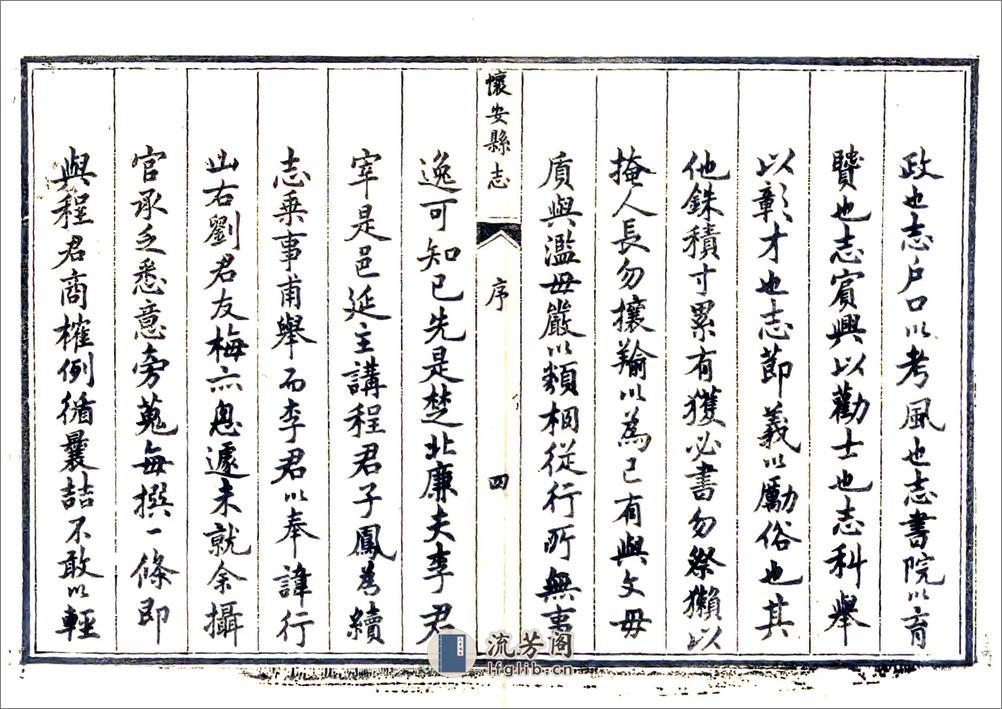 政也志户口以考風也志書院以育
賢也志賓興以勸士也志科舉
以彰才也志節義以勵俗也其
他銖積寸累有獲必書勿祭獺以
掩人長勿攘羭以為己有與文毋
質與濫毋嚴以類相從行所無事
懷安縣志
序
四
逸可知已先是楚北廉夫李君
宰是邑延主講程君子鳳為續
志乗事甫舉而李君以奉諱行
山右劉君友梅亦悤遽未就余攝
官承乏悉意旁蒐每撰一條即
與程君商榷例循曩喆不敢以輕
流芳阁
lfglib.cn